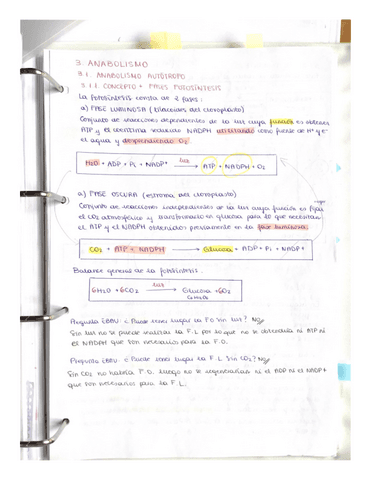 3. ANABOLISMO
3.1. ANABOLISMO AUTÓTROFO
3.1.1. CONCEPTO + FASES FOTOSÍNTESIS
La fotosíntesis consta de 2 fases:
a) FASE LUMINOSA (tilacoides del cloroplasto)
Conjunto de reacciones dependientes de la luz cuya función es obtener
ATP y el coenzima reducido NADPH utilizando como fuente de H⁺ y e⁻
el agua y desprendiendo O₂
H₂O + ADP + Pi + NADP⁺ luz → ATP + NADPH + O₂
a) FASE OSCURA (estroma del cloroplasto)
Conjunto de reacciones independientes de la luz cuya función es fijar
el CO₂ atmosférico y transformarlo en glucosa para lo que necesitan
el ATP y el NADPH obtenidos previamente en la fase luminosa.
CO₂ + ATP + NADPH → Glucosa + ADP + Pi + NADP⁺
Balance general de la fotosíntesis:
6H₂O + 6CO₂ luz → Glucosa + 6O₂
C₆H₁₂O₆
Pregunta EBAU: ¿Puede tener lugar la F.O sin luz? No,
Sin luz no se puede realizar la F.L por lo que no se obtendría ni ATP ni
el NADPH que son necesarios para la F.O.
Pregunta EBAU: ¿Puede tener lugar la F.L sin CO₂? No,
Sin CO₂ no habría F.O. luego no se regenerarían ni el ADP ni el NADP⁺
que son necesarios para la F.L.